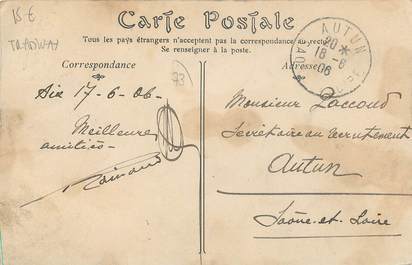 15 €
TRAMWAY
Carte Postale
Tous les pays étrangers n'acceptent pas la correspondance au recto
Se renseigner à la poste.
Correspondance
Adresse
AUTUN
20 *
18 - 6
06
73
Aix 17-6-06
Meilleures
amitiés
Raimaud
Monsieur Laccoud
Secrétaire au recrutement
Autun
Saône-et-Loire